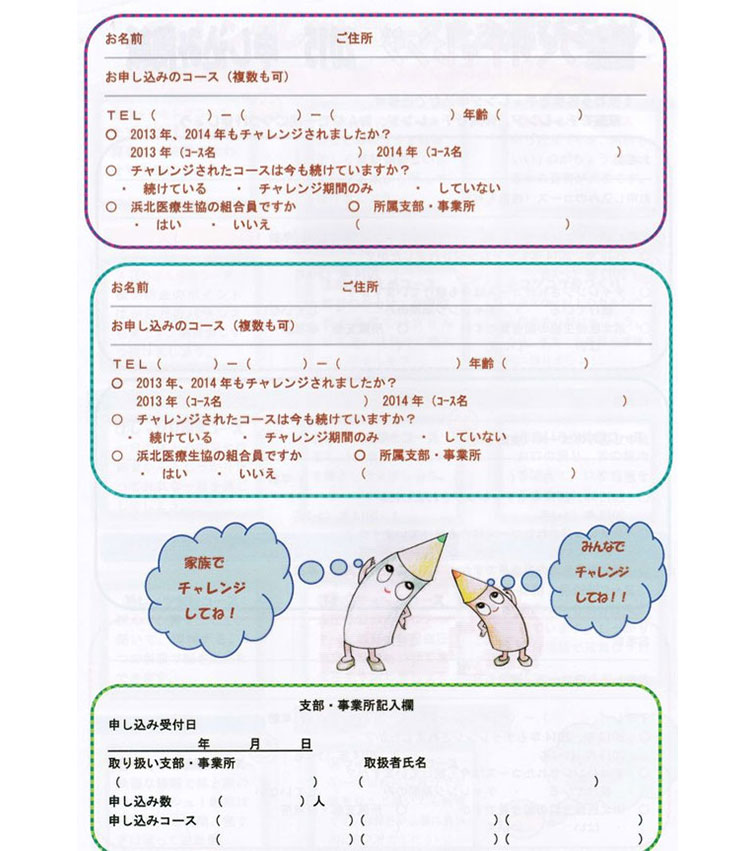 お名前　　ご住所
お申し込みのコース（複数も可）
ＴＥＬ（　　）－（　　）－（　　）年齢（　　）
○ 2013年、2014年もチャレンジされましたか？
2013年（コース名　　）　2014年（コース名　　）
○ チャレンジされたコースは今も続けていますか？
・　続けている　・　チャレンジ期間のみ　・　していない
○ 浜北医療生協の組合員ですか　○ 所属支部・事業所
・　はい　・　いいえ　（　　）
お名前　　ご住所
お申し込みのコース（複数も可）
ＴＥＬ（　　）－（　　）－（　　）年齢（　　）
○ 2013年、2014年もチャレンジされましたか？
2013年（コース名　　）　2014年（コース名　　）
○ チャレンジされたコースは今も続けていますか？
・　続けている　・　チャレンジ期間のみ　・　していない
○ 浜北医療生協の組合員ですか　○ 所属支部・事業所
・　はい　・　いいえ　（　　）
家族で
チャレンジ
してね！
みんなで
チャレンジ
してね！！
支部・事業所記入欄
申し込み受付日
年　月　日
取り扱い支部・事業所　　取扱者氏名
（　　）　（　　）
申し込み数　（　　）人
申し込みコース　（　　）（　　）（　　）
（　　）（　　）（　　）